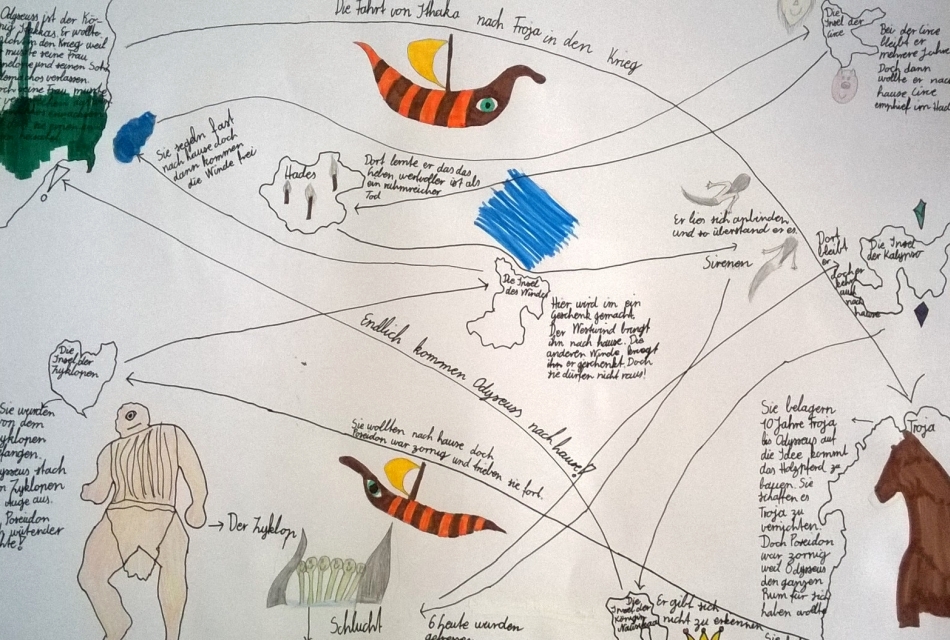 Die Fahrt von Ithaka nach Troja in den Krieg
Odysseus ist der Kö-
nig Ithakas. Er wollte
nicht in den Krieg weil
seine Frau
und seinen Sohn
verlassen.
seine Frau
Sie segeln fast
nach hause doch
dann kommen
die Winde frei
Hades
Dort lernte er das das
leben wertvoller ist als
ein ruhmreicher
Tod
Die
Insel der
Circe
Bei der Circe
bleibt er
mehrere Jahre
Doch dann
wollte er nach
hause. Circe
empfiel im Had
Er lies sich anbinden
und so überstand er es.
Sirenen
Dort
bleibt
er
doch er
kehrt
auch
nach
hause
Die Insel
der Kalypso
Die Insel
des Windes
Hier wird im ein
Geschenk gemacht.
Der Westwind bringt
ihn nach hause. Die
anderen Winde kriegt
ihn er geschenkt. Doch
sie dürfen nicht raus!
Endlich kommen Odysseus nach hause!
Die
Insel der
Zyklopen
Sie wurden
von dem
yklopen
fangen.
ysseus stach
Zyklopen
auge aus.
Poseidon
wütender
Der Zyklop
Sie wollten nach hause doch
Poseidon war zornig und trieben sie fort.
Schlucht
6 leute wurden
Die
Insel der
Königin
Nausikaa
Er gibt sich
nicht zu erkennen
Troja
Sie belagern
10 Jahre Troja
bis Odysseus auf
die Idee kommt
das Holzpferd zu
bauen. Sie
schaffen es
Troja zu
vernichten.
Doch Poseidon
war zornig
weil Odysseus
den ganzen
Rum für sich
haben wollte